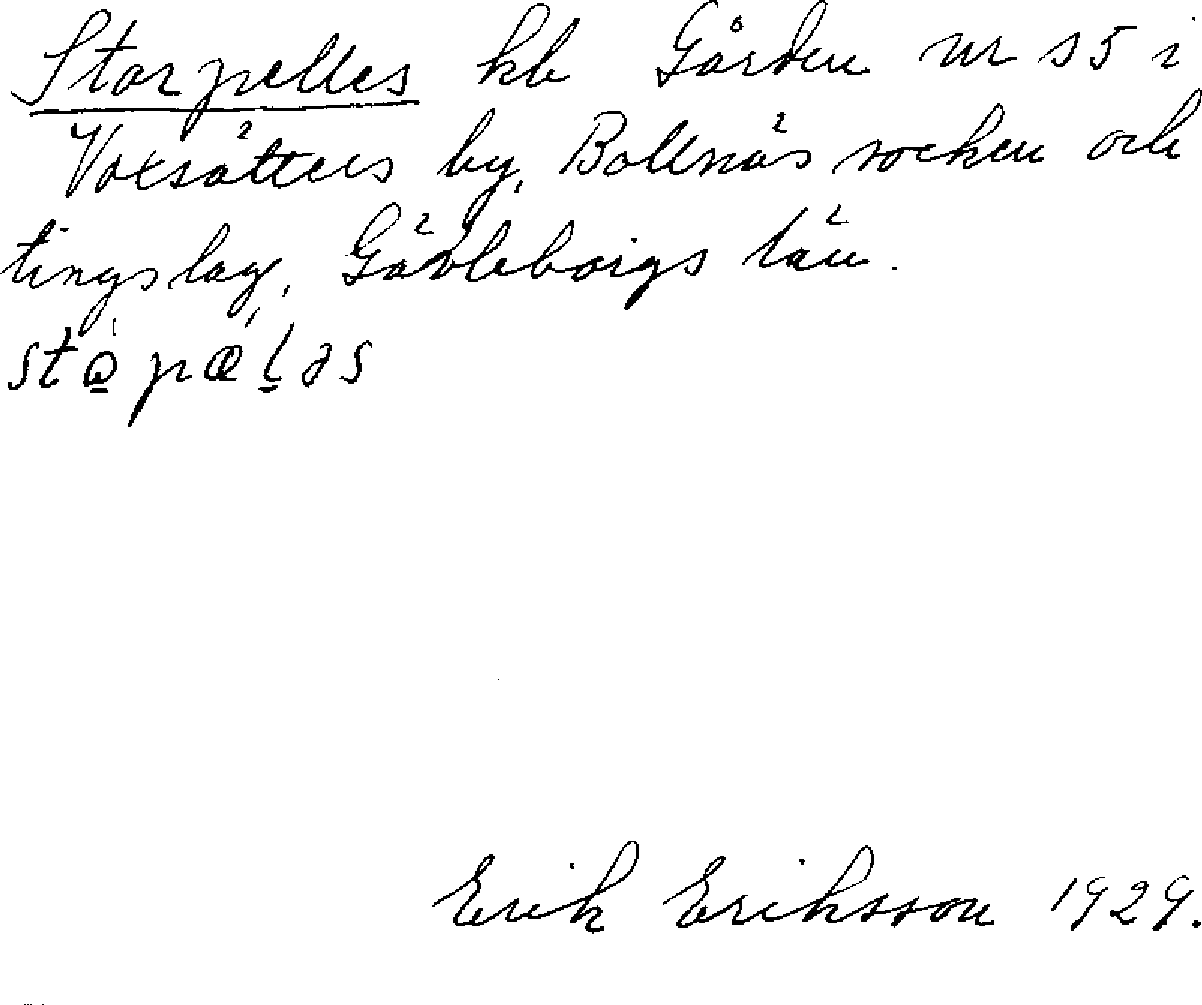 Storpelles kb Gården nr 15 i
Voxsätters by, Bollnäs socken och
tingslag, Gävleborgs län.
stòpæ̀ḷəs
Erik Eriksson 1929.